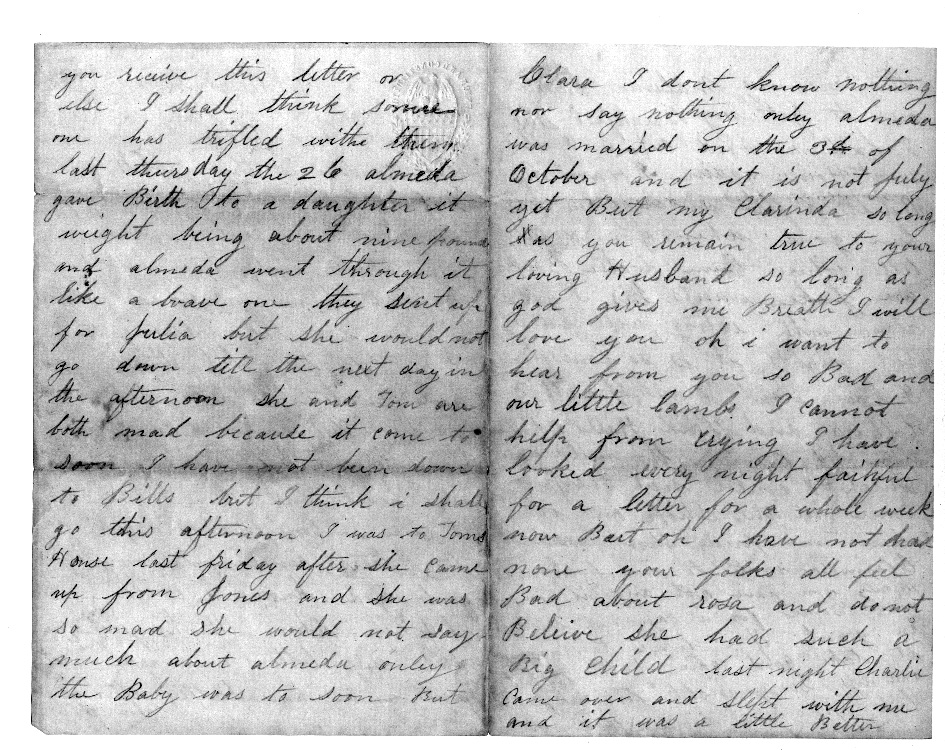 you receive this letter or
else I shall think some
one has trifled withe them
last thursday the 26 almeda
gave Birth to a daughter it
weight being about nine pound
and almeda went through it
like a brave one they sent up
for julia but she would not
go down till the next day in
the afternoon she and Tom are
both mad because it come to
soon I have not been down
to Bills but I think i shall
go this afternoon I was to Toms
House last friday after she came
up from Jones and she was
so mad she would not say
much about almeda onley
the Baby was to soon But
Clara I dont know nothing
nor say nothing onley almeda
was married on the 3 of
October and it is not july
yet But my Clarinda so long
as you remain true to your
loving Husband so long as
god gives me Breath I will
love you oh i want to
hear from you so Bad and
our little lambs I cannot
help from crying I have
looked every night faithful
for a letter for a whole week
now But oh I have not had
none your folks all feel
Bad about rosa and do not
Beleive she had such a
Big child last night Charlie
came over and slept with me
and it was a little Better